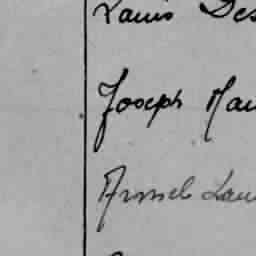 Louis Des
Joseph Mau
Armel Lau